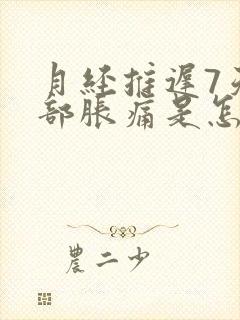 月经推遲7天
部脹痛是怎
農二少